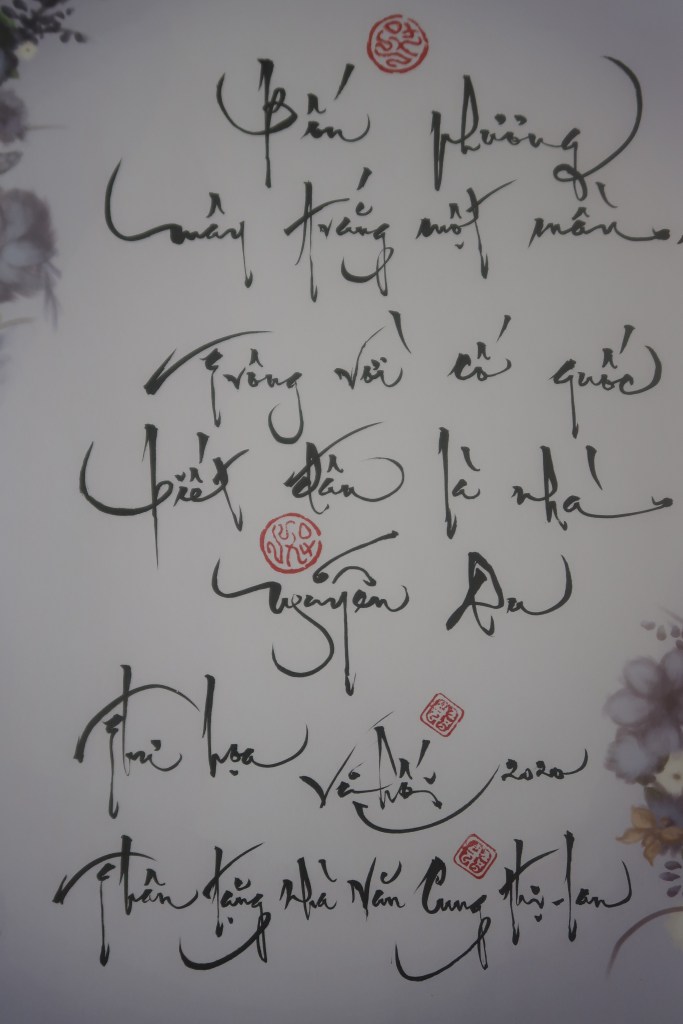 Bốn phương
mây trắng một màu
Trông vời cố quốc
biết đâu là nhà
Nguyễn Du
Thi họa
Vũ Hối 2020
Thân tặng nhà văn Cung Thị-Lan